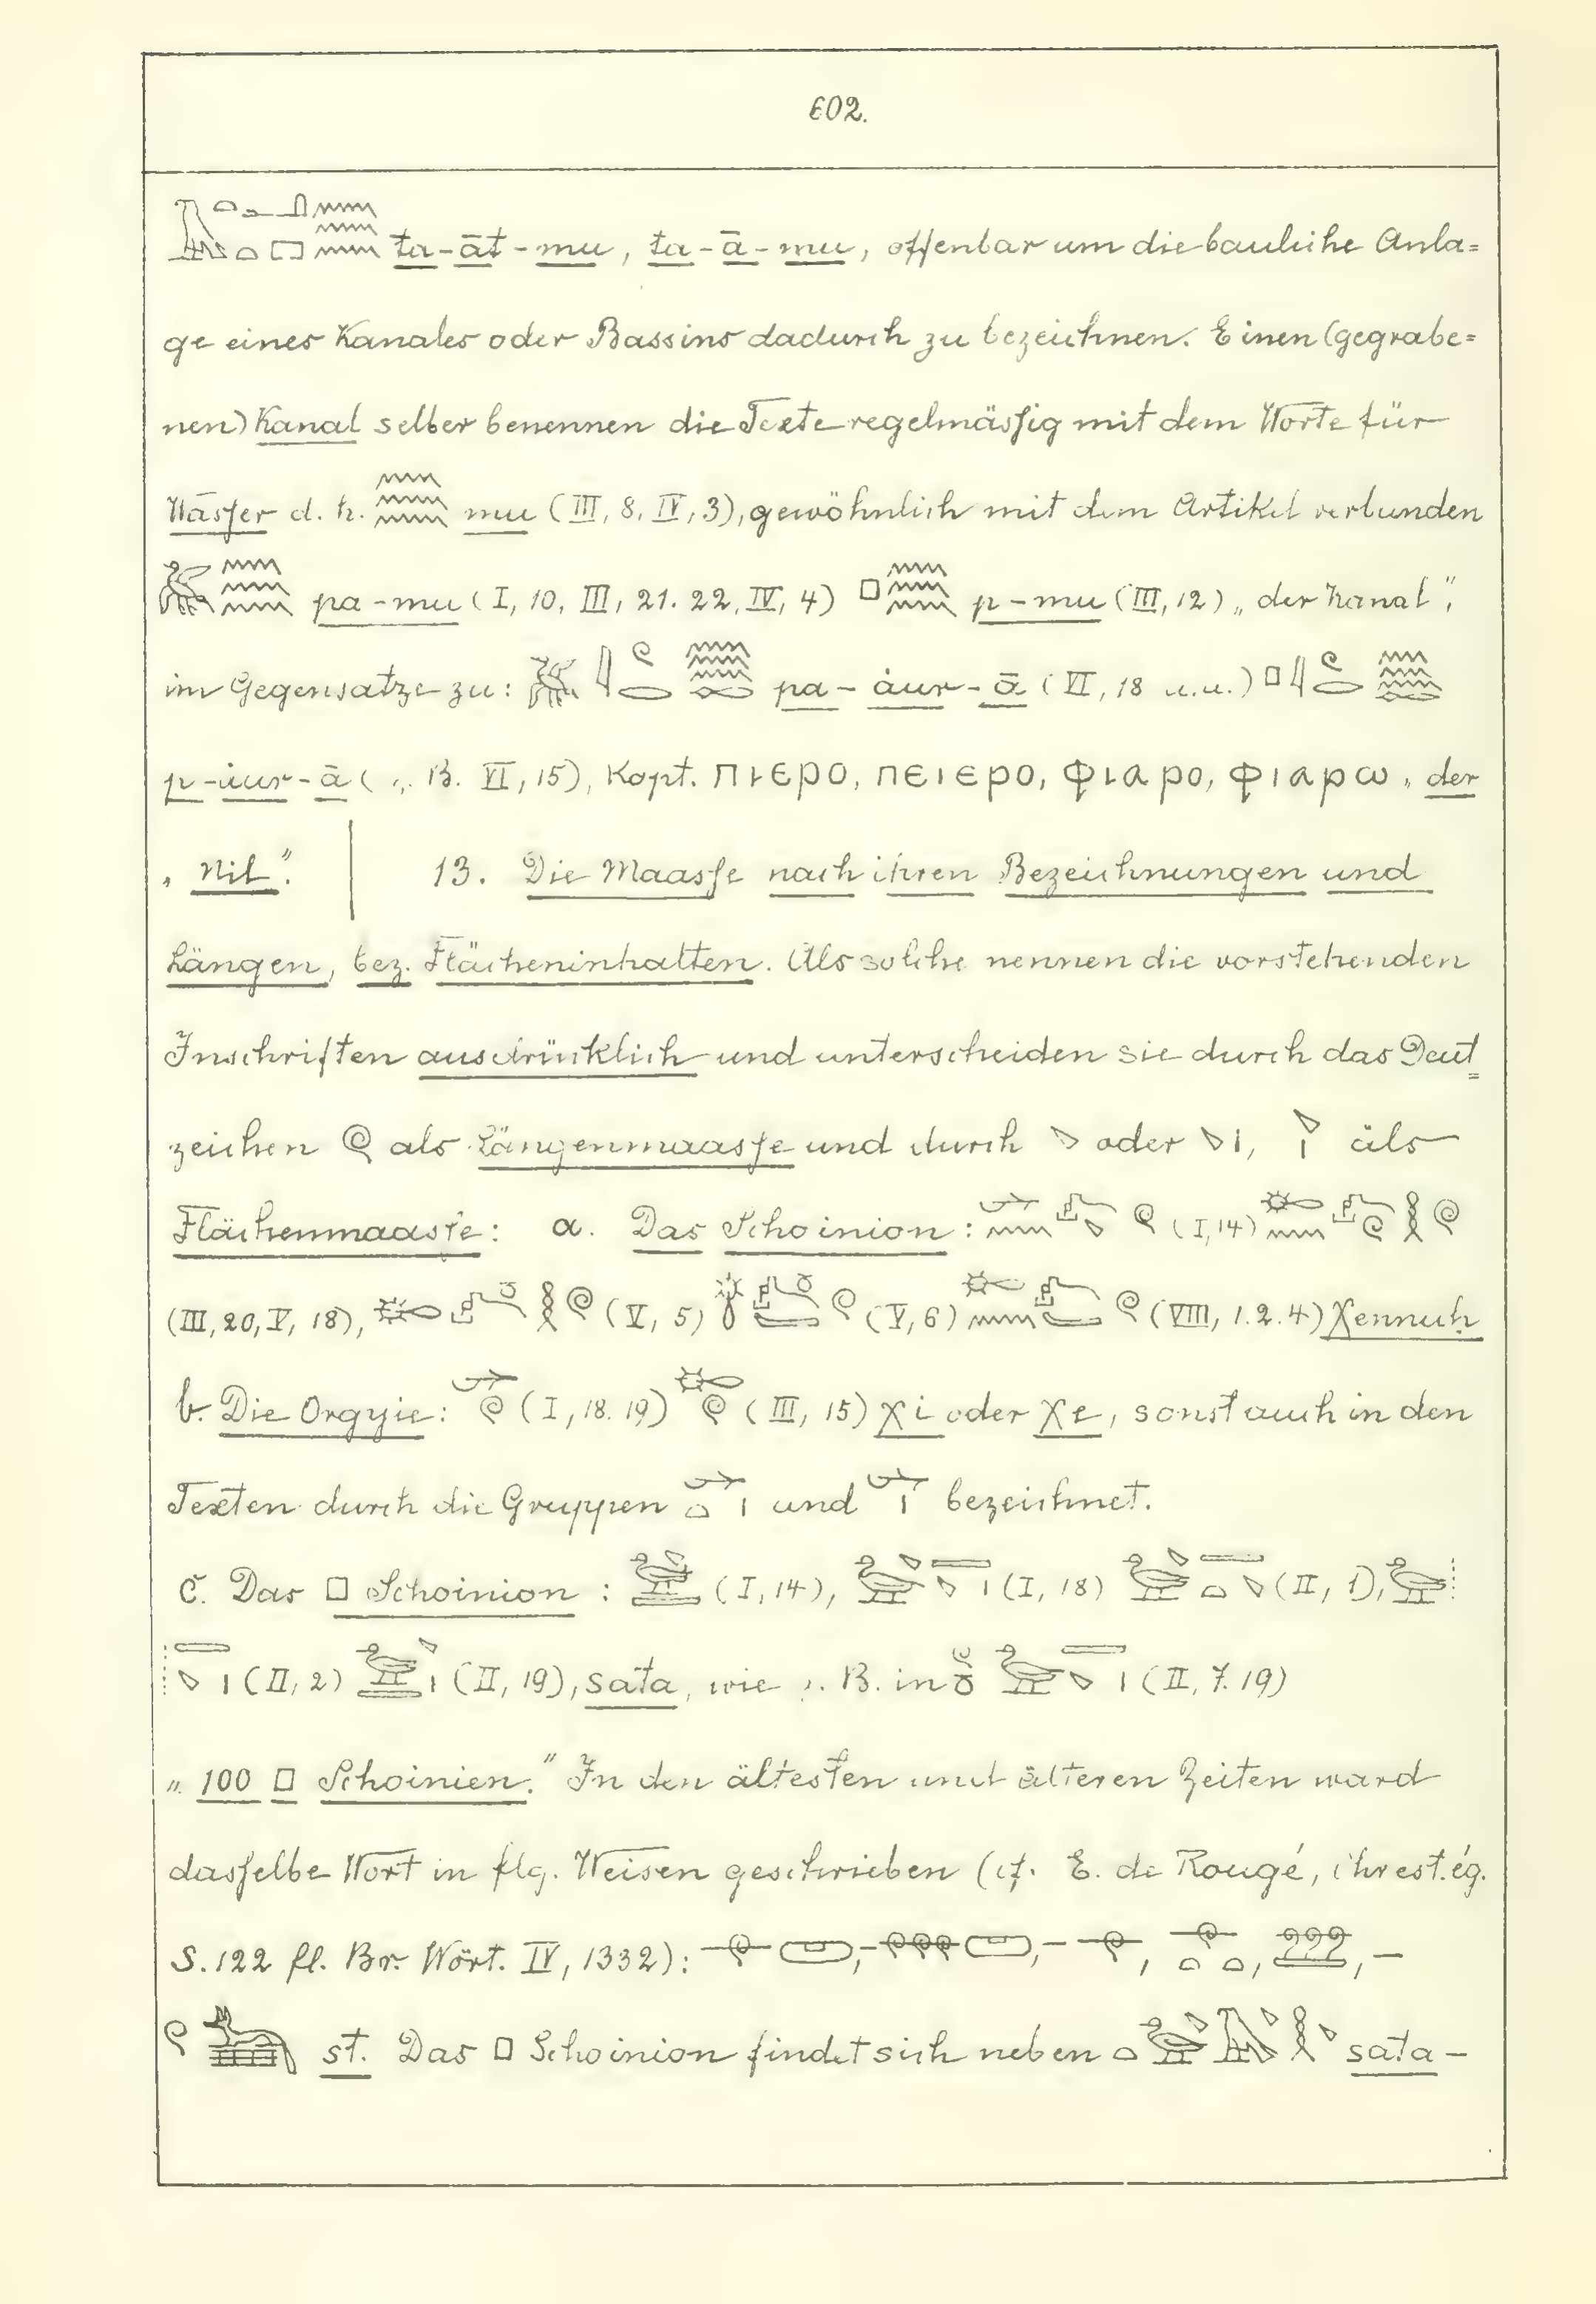 602.
ta-āt-mu, ta-ā-mu, offenbar um die bauliche Anla=
ge eines Kanales oder Bassins dadurch zu bezeichnen. Einen (gegrabe=
nen) Kanal selber benennen die Texte regelmässig mit dem Worte für
Wasser d. h. 𓈗 mu (III, 8, IV, 3), gewöhnlich mit dem Artikel verbunden
𓅮𓈗 pa-mu (I, 10, III, 21. 22, IV, 4) 𓊪𓈗 p-mu (III, 12) „der Kanal“,
im Gegensatze zu: pa-áur-ā (VI, 18 u.u.)
p-áur-ā (z. B. VI, 15), Kopt. ⲡⲓⲉⲣⲟ, ⲡⲉⲓⲉⲣⲟ, ⲫⲓⲁⲣⲟ, ⲫⲓⲁⲣⲱ „der
„Nil“. | 13. Die Maasse nach ihren Bezeichnungen und
Längen, bez. Flächeninhalten. Als solche nennen die vorstehenden
Inschriften ausdrücklich und unterscheiden sie durch das Deut=
zeichen 𓍢 als Längenmaasse und durch oder als
Flächenmaasse: a. Das Schoinion: (I, 14)
(III, 20, V, 18), (V, 5) (V, 6) (VIII, 1. 2. 4) χennuḥ
b. Die Orgyie: (I, 18. 19) (III, 15) χi oder χe, sonst auch in den
Texten durch die Gruppen und bezeichnet.
c. Das □ Schoinion: (I, 14), (I, 18) (II, 1),
(II, 2) (II, 19), sata, wie z. B. in (II, 7. 19)
„100 □ Schoinien.“ In den ältesten und älteren Zeiten ward
dasselbe Wort in flg. Weisen geschrieben (cf. E. de Rougé, chrest. ég.
S. 122 fl. Br. Wört. IV, 1332):
st. Das □ Schoinion findet sich neben sata-